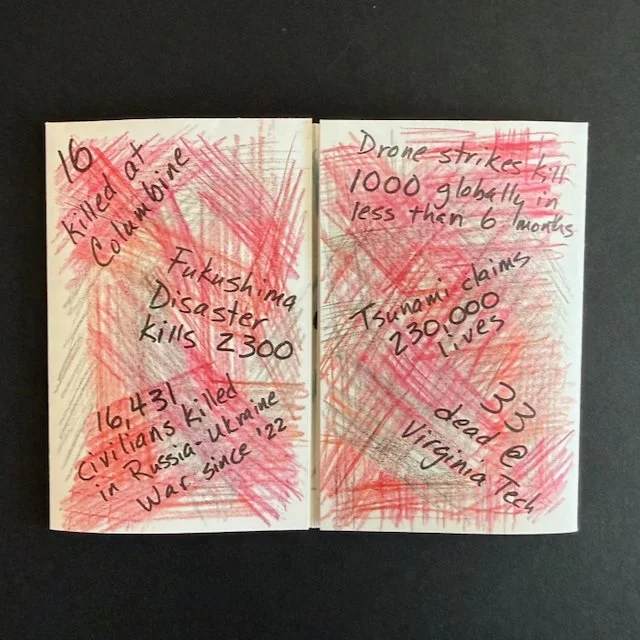 16
killed at
Columbine
Fukushima
Disaster
kills 2300
16,431
civilians killed
in Russia-Ukraine
War since '22
Drone strikes kill
1000 globally in
less than 6 months
Tsunami claims
230,000
lives
33
dead @
Virginia Tech